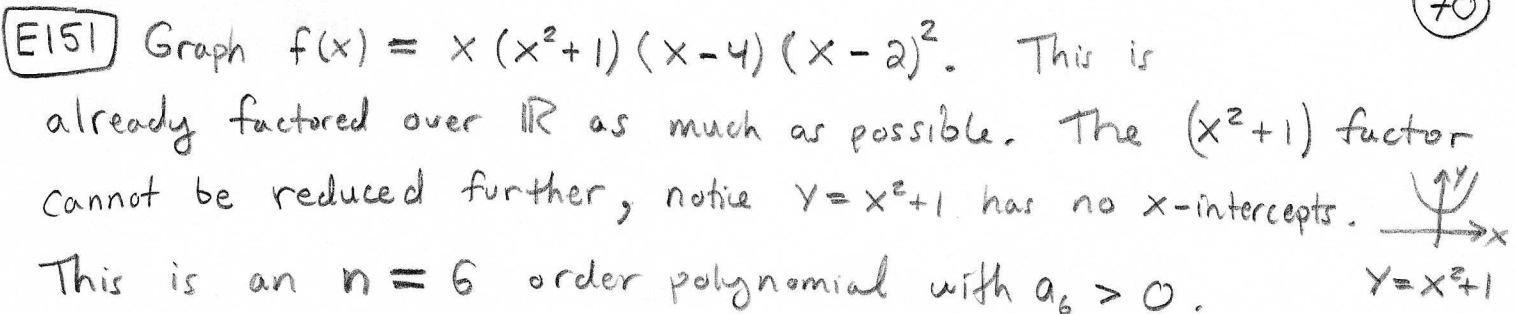 E151 Graph f(x) = x (x²+1) (x-4) (x-2)². This is
already factored over ℝ as much as possible. The (x²+1) factor
cannot be reduced further, notice y = x²+1 has no x-intercepts.
y
x
This is an n = 6 order polynomial with a₆ > 0.
y = x²+1